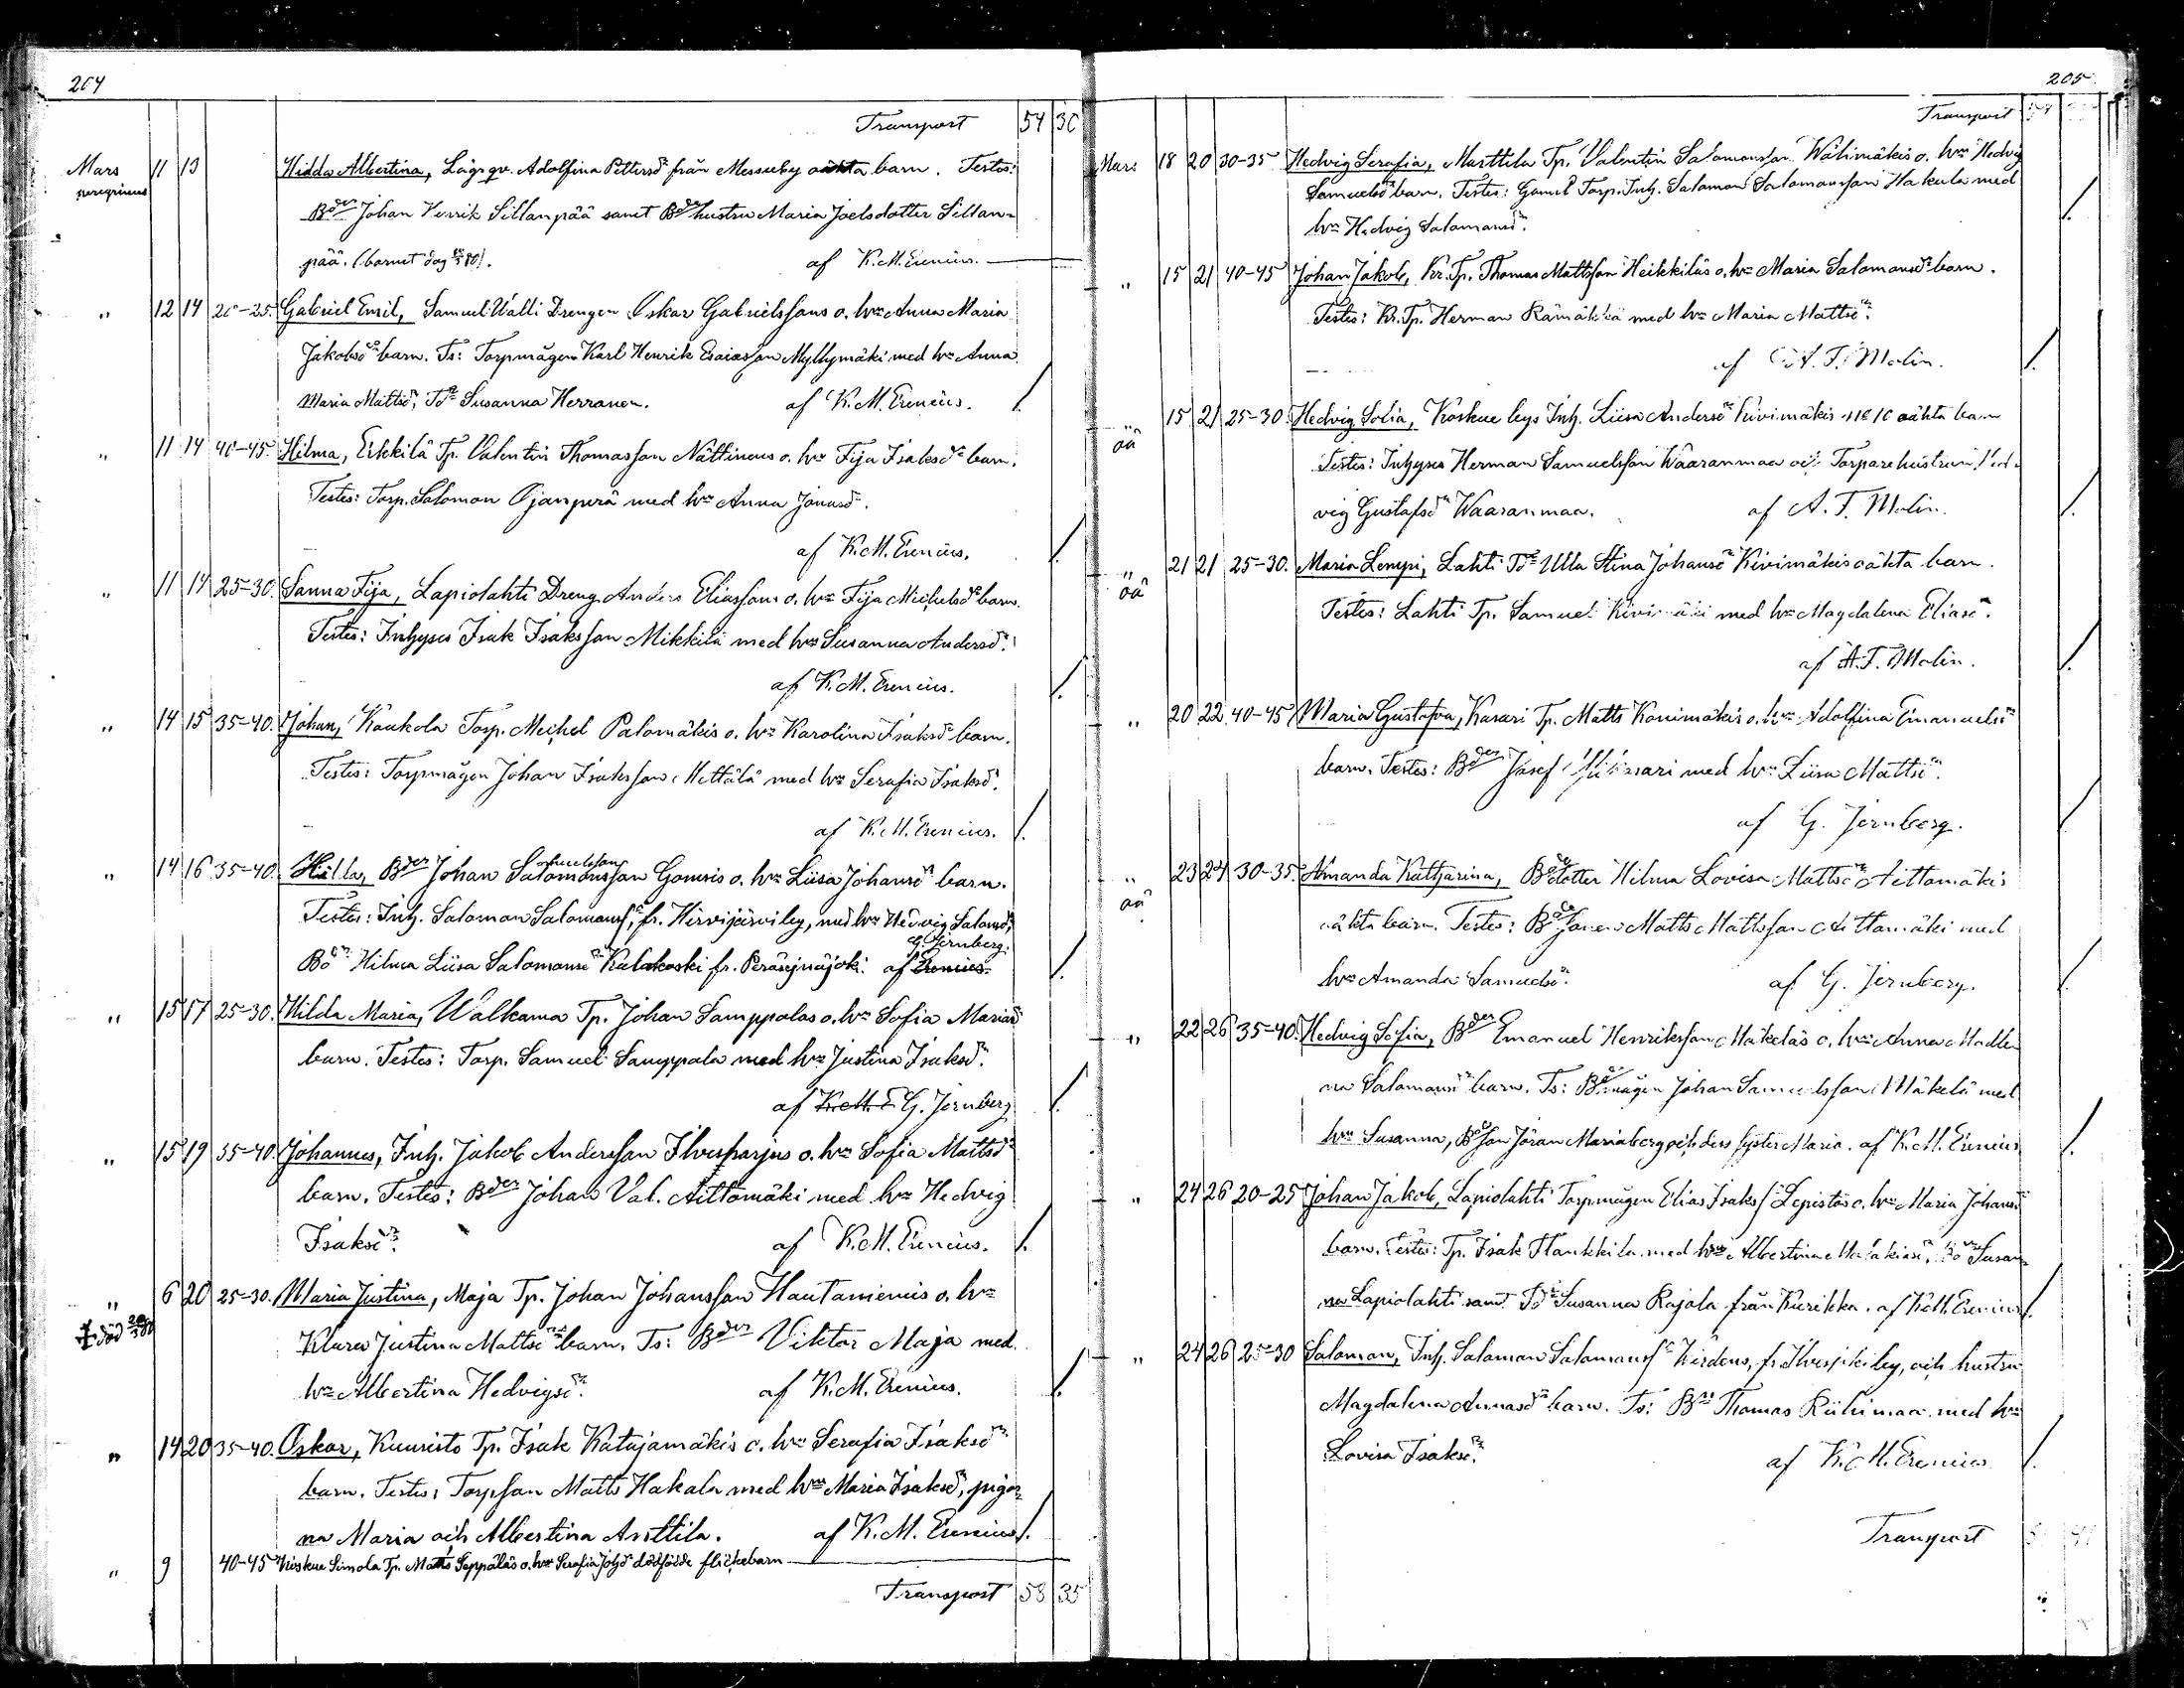 204
Transport 54 30
Mars 11 13 Hilda Albertina, Lägrqv. Adolfina Pettersdr från Messuby oäkta barn. Testes:
peregrinus
Bder Johan Henrik Sillanpää samt Bdehustru Maria Joelsdotter Sillan-
pää. (barnet dog af K.M. Erenius.
„ 12 14 20-25. Gabriel Emil, Samuel Walli Drengen Oskar Gabrielssons o. hrs Anna Maria
Jakobsdrs barn. Ts: Torpmågen Karl Henrik Esaiasson Myllymäki med hru Anna
Maria Mattsdr, Tdr Susanna Herranen. af K.M. Erenius. /.
„ 11 14 40-45. Hilma, Erkkilä Tp. Valentin Thomasson Nättinens o. hrs Fija Isaksdrs barn.
Testes: Torp. Salomon Ojanperä med hru Anna Jonasdr.
af K.M. Erenius. /.
„ 11 14 25-30. Sanna Fija, Lapiolahti Dreng Anders Eliassons o. hrs Fija Michelsdrs barn.
Testes: Inhyses Isak Isaksson Mikkilä med hru Susanna Andersdr.
af K.M. Erenius. /.
„ 14 15 35-40. Johan, Kaukola Torp. Michel Palomäkis o. hrs Karolina Isaksdrs barn.
Testes: Torpmågen Johan Isaksson Mettälä med hru Serafia Isaksdr.
af K.M. Erenius. /.
„ 14 16 35-40. Hilla, Bder Johan Salomonsson Gomsis o. hrs Liisa Johansdrs barn.
Testes: Inh. Salomon Salomons, fr. Hirvijärviby, med hru Hedvig Salomdr,
G. Jernberg.
Bdn Hilma Liisa Salomonsdr Kalakoski fr. Peräseinäjoki. af Erenius. /.
„ 15 17 25-30. Hilda Maria, Walkama Tp. Johan Samppalas o. hrs Sofia Mariasdr
barn. Testes: Torp. Samuel Samppala med hru Justina Isaksdr.
af K.M. E G. Jernberg /.
„ 15 19 35-40. Johannes, Inh. Jakob Andersson Ilvesharjus o. hrs Sofia Mattsdr
barn. Testes: Bder Johan Val. Aittomäki med hru Hedvig
Isaksdr. af K.M. Erenius. /.
„ 6 20 25-30. Maria Justina, Maja Tp. Johan Johansson Hautaniemis o. hrs
död Klara Justina Mattsdrs barn. Ts: Bder Viktor Maja med
hru Albertina Hedvigsdr. af K.M. Erenius. /.
„ 14 20 35-40. Oskar, Kuusisto Tp. Isak Katajamäkis o. hrs Serafia Isaksdrs
barn. Testes: Torpson Matts Hakala med hru Maria Isaksdr, pigor-
na Maria och Albertina Anttila. af K.M. Erenius /.
„ 9 40-45 Koskue Simola Tp. Matts Seppäläs o. hrs Serafia Johdr dödfödde flickebarn
Transport 58 35
205
Transport
Mars 18 20 30-35 Hedvig Serafia, Marttila Tp. Valentin Salomonsson Wälimäkis o. hrs Hedvig
Samuelsdrs barn. Testes: Gamil Torp. Inh. Salomon Salomonsson Hakala med
hru Hedvig Salomonsdr. /.
„ 15 21 40-45 Johan Jakob, Kr. Tp. Thomas Mattsson Heikkiläs o. hrs Maria Salomonsdrs barn.
Testes: Kr. Tp. Herman Rämäkkä med hru Maria Mattsdr.
af A.F. Molin. /.
„ 15 21 25-30. Hedvig Sofia, Koskue bys Inh. Liisa Andersdr Kivimäkis oäkta barn
oä
Testes: Inhyses Herman Samuelsson Waaranmaa och Torparehustrun Hed-
vig Gustafsdr Waaranmaa. af A.F. Molin. /.
„ 21 21 25-30. Maria Lempi, Lahti Tdr Ulla Stina Johansdr Kivimäkis oäkta barn.
oä
Testes: Lahti Tp. Samuel Kivimäki med hru Magdalena Eliasdr.
af A.F. Molin. /.
„ 20 22 40-45 Maria Gustafva, Kasari Tp. Matts Konimäkis o. hrs Adolfina Emanuelsdr
barn. Testes: Bder Josef med hru Liisa Mattsdr.
af G. Jernberg. /.
„ 23 24 30-35. Amanda Katharina, Bdedotter Hilma Lovisa Mattsdr Aittomäkis
oä
oäkta barn. Testes: Bdesonen Matts Mattsson Aittomäki med
hru Amanda Samuelsdr. af G. Jernberg. /.
„ 22 26 35-40. Hedvig Sofia, Bder Emanuel Henriksson Mäkeläs o. hrs Anna Madle-
na Salomonsdrs barn. Ts: Bdemågen Johan Samuelsson Mäkelä med
hru Susanna, Bdeson Jöran Mariaberg och dess syster Maria. af K.M. Erenius /.
„ 24 26 20-25 Johan Jakob, Lapiolahti Torpmågen Elias Isaks Lepistös o. hrs Maria Johansdr
barn. Testes: Tp. Isak Hankkila med hru Albertina Malakiasdr, Susan-
na Lapiolahti samt Tdr Susanna Rajala från Kurikka. af K.M. Erenius /.
„ 24 26 25-30 Salomon, Inh. Salomon Salomons fr. Ilvesjokiby, och hustru
Magdalena Annasdrs barn. Ts: Bder Thomas Riihimaa med hru
Lovisa Isaksdr. af K.M. Erenius /.
Transport